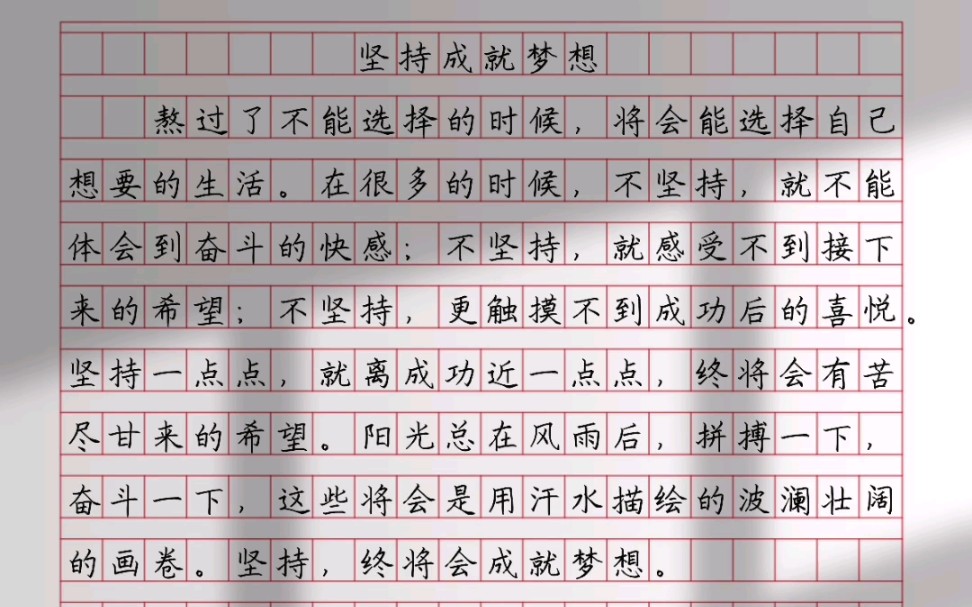 坚持成就梦想
熬过了不能选择的时候，将会能选择自己
想要的生活。在很多的时候，不坚持，就不能
体会到奋斗的快感；不坚持，就感受不到接下
来的希望；不坚持，更触摸不到成功后的喜悦。
坚持一点点，就离成功近一点点，终将会有苦
尽甘来的希望。阳光总在风雨后，拼搏一下，
奋斗一下，这些将会是用汗水描绘的波澜壮阔
的画卷。坚持，终将会成就梦想。